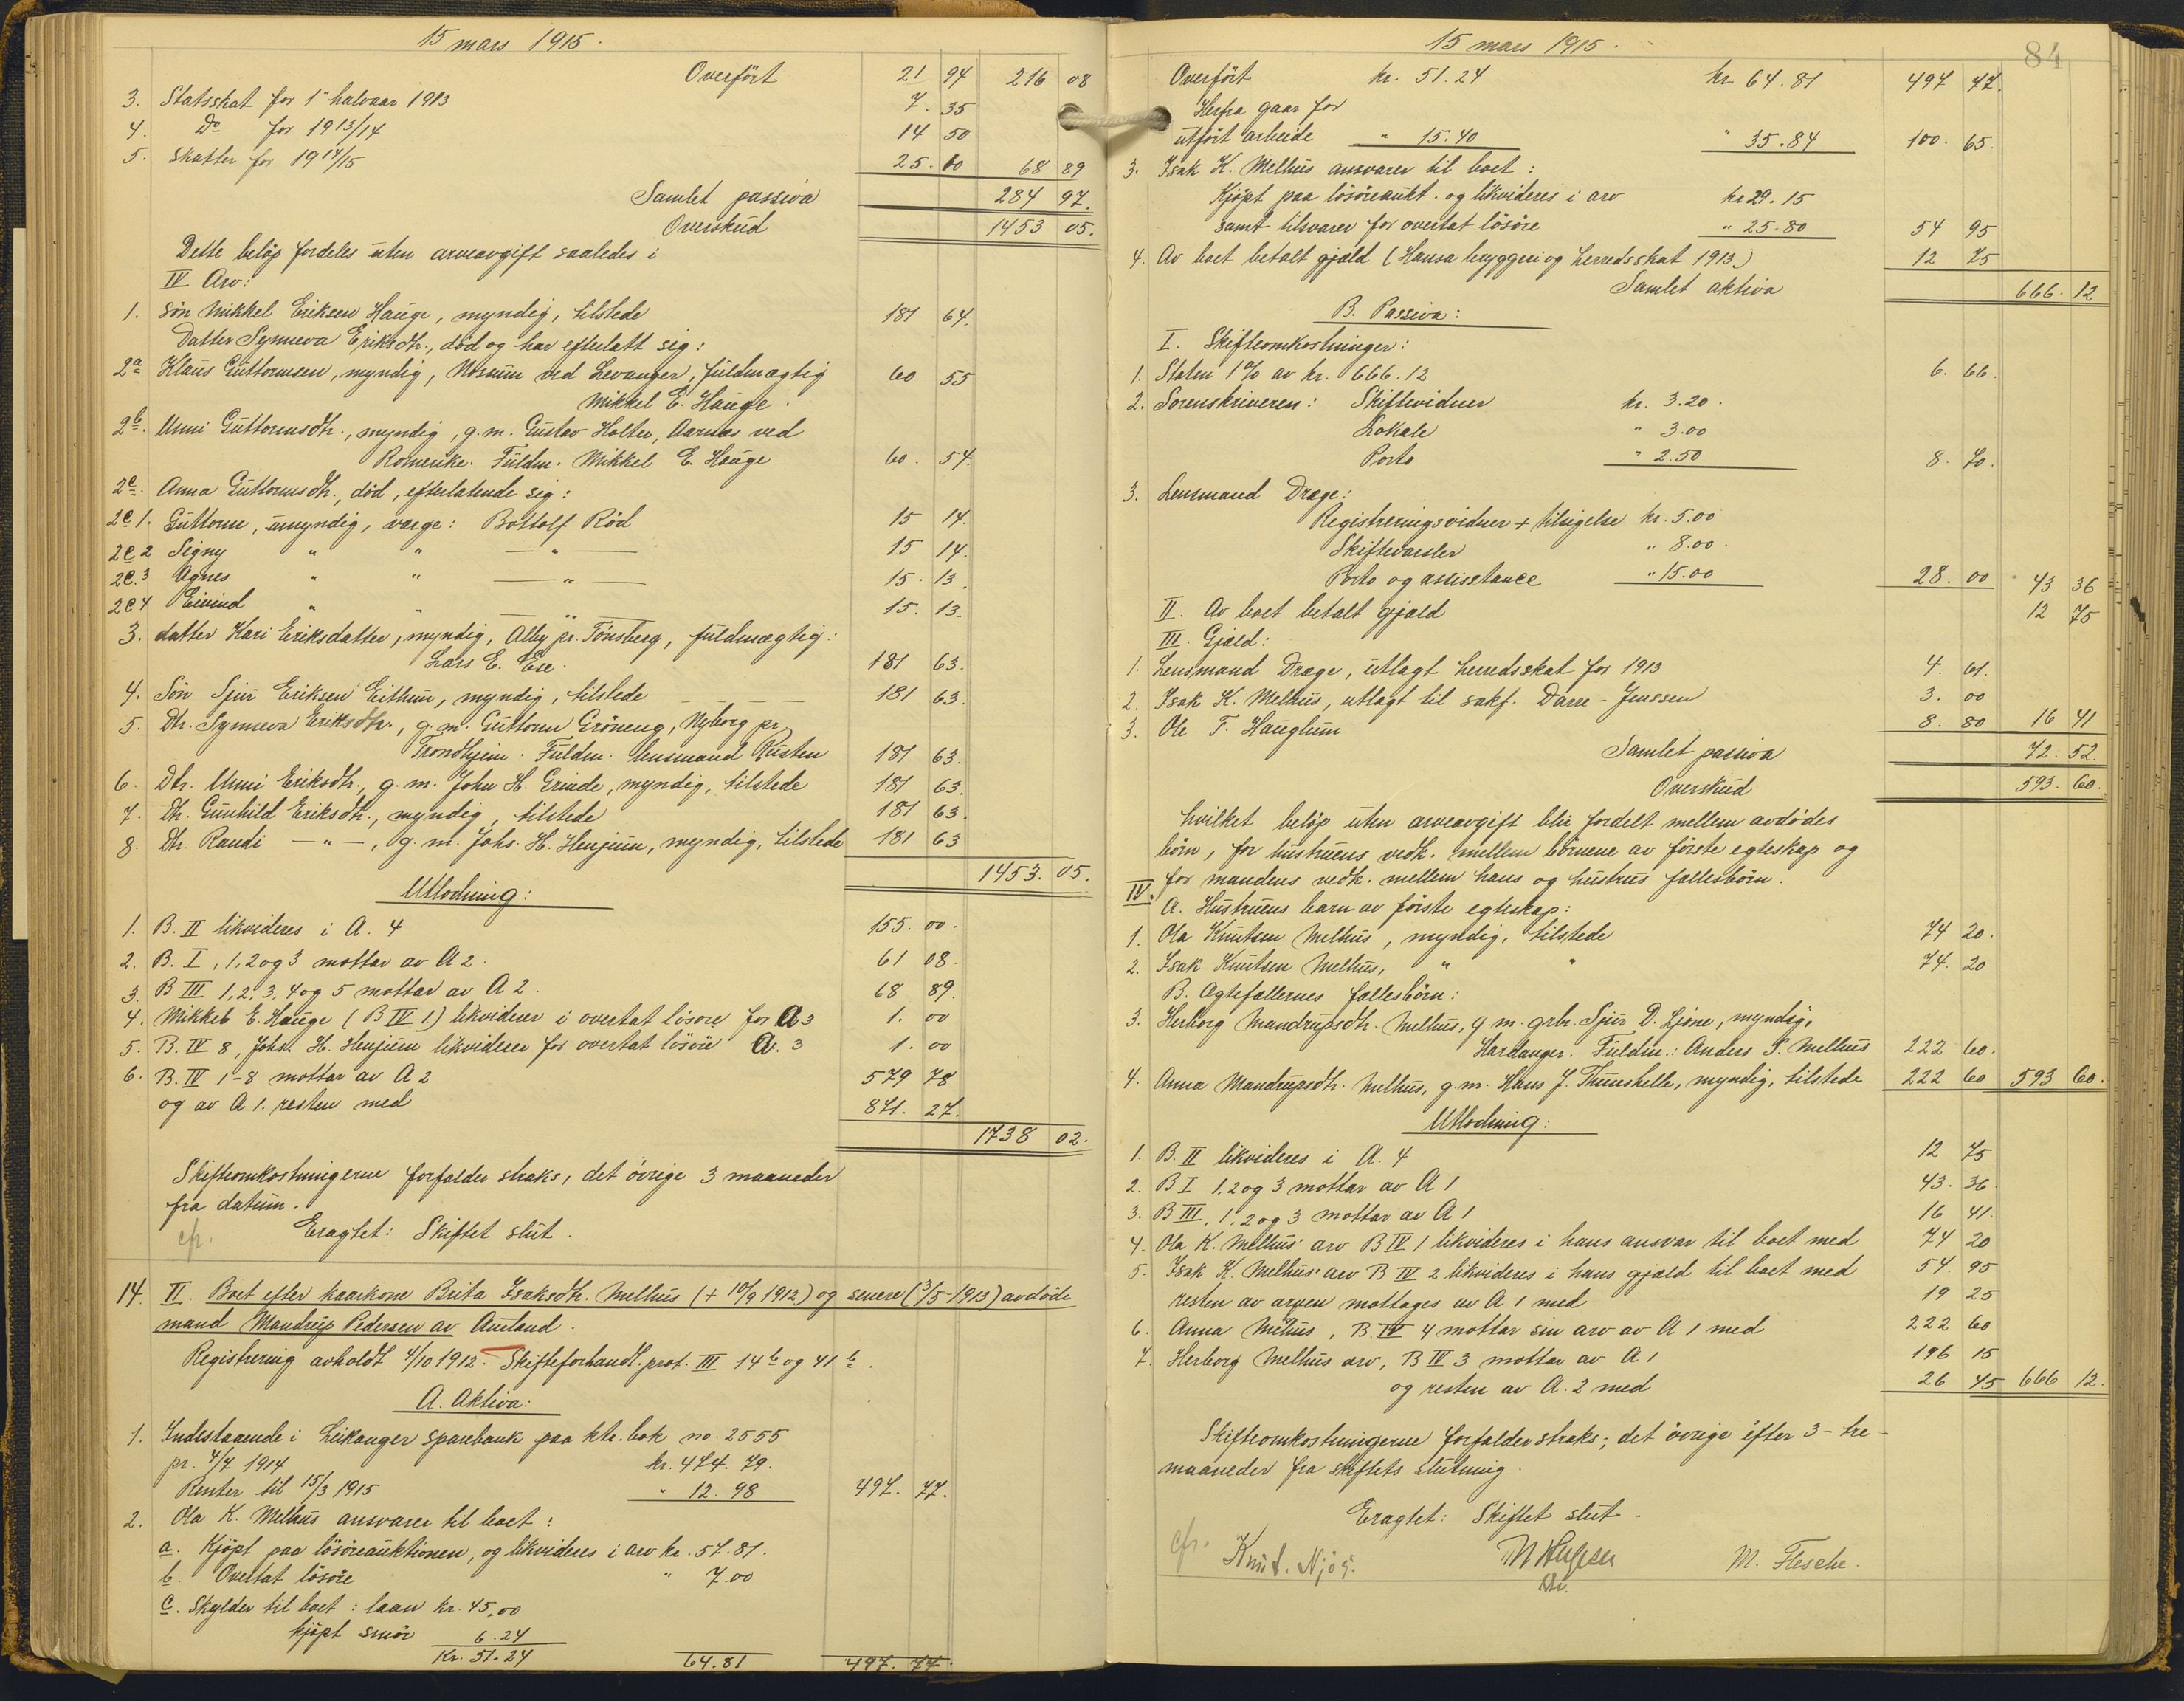 15 mars 1915.
Overført 21 94 216 08
3. Statsskat for 1ste halvaar 1913 7. 35
4. Do for 1913/14 14 50
5. Skatter for 1914/15 25. 10 68 89
Samlet passiva 284 97.
Overskud 1453 05.
Dette beløp fordeles uten arveavgift saaledes i
IV Arv:
1. Søn Mikkel Eriksen Hauge, myndig, tilstede 181 64.
Datter Synneva Eriksdtr., død og har efterlatt sig:
2a Klaus Guttormsen, myndig, Mosum ved Levanger, fuldmægtig 60 55
Mikkel E. Hauge.
2b. Unni Guttormsdtr., myndig, g.m. Gustav Holter, Aarnes ved
Romerike. Fuldm. Mikkel E. Hauge 60. 54.
2c. Anna Guttormsdtr., død, efterlatende sig:
2c 1. Guttorm, umyndig, værge: Bottolf Rød 15 14.
2c 2 Signy " " — " — 15 14.
2c. 3 Agnes " " — " — 15. 13.
2c 4 Eivind " " — " — 15. 13.
3. datter Kari Eriksdatter, myndig, Alby pr. Tønsberg, fuldmægtig:
Lars E. Ese. 181 63.
4. Søn Sjur Eriksen Eithun, myndig, tilstede 181 63.
5. Dtr. Synneva Eriksdtr., g.m. Guttorm Grøneng, Nyborg pr.
Trondhjem. Fuldm. lensmand Rusten 181 63.
6. Dtr. Unni Eriksdtr., g.m. John H. Grinde, myndig, tilstede 181 63.
7. Dtr. Gunhild Eriksdtr., myndig, tilstede 181 63.
8. Dtr. Randi — " —, g.m. Johs. H. Henjum, myndig, tilstede 181 63
1453. 05.
Utlodning:
1. B. II likvideres i A. 4 155. 00.
2. B. I, 1, 2 og 3 mottar av A 2. 61 08.
3. B III 1, 2, 3, 4 og 5 mottar av A 2. 68 89.
4. Mikkel E. Hauge (B IV 1) likviderer i overtat løsøre for A 3 1. 00
5. B. IV 8, Johs. H. Henjum likviderer for overtat løsøre A. 3 1. 00
6. B. IV 1-8 mottar av A 2 579 78
og av A 1. resten med 871. 27.
1738 02.
Skifteomkostningerne forfalder straks, det øvrige 3 maaneder
fra datum.
cfr. Eragtet: Skiftet slut.
14. II. Boet efter kaarkone Brita Isaksdtr. Melhus (+ 10/9 1912) og senere (3/5 1913) avdøde
mand Mandrup Pedersen av Aurland.
Registrering avholdt 4/10 1912. Skifteforhandl. prot. III 14b og 41b.
A. Aktiva:
1. Indestaaende i Leikanger sparebank paa ktr. bok no. 2555
pr. 4/7 1914 kr. 484. 79.
Renter til 15/3 1915 " 12. 98 497. 77.
2. Ola K. Melhus ansvarer til boet:
a. Kjøpt paa løsøreauktionen, og likvideres i arv kr. 57. 81.
b. Overtat løsøre " 7.00
c. Skylder til boet: laan kr. 45,00
kjøpt smør 6. 24
Kr. 51. 24 64. 81 497. 77.
15 mars 1915.
84
Overført kr. 51. 24 kr 64. 81 497 77.
Herfra gaar for
utført arbeide " 15. 40 " 35. 84 100. 65.
3. Isak K. Melhus ansvarer til boet:
Kjøpt paa løsøreaukt. og likvideres i arv kr 29. 15
samt tilsvarer for overtat løsøre " 25. 80 54 95
4. Av boet betalt gjæld (Hansa bryggeri og herredsskat 1913.) 12 75
Samlet aktiva 666. 12
B. Passiva:
I. Skifteomkostninger:
1. Staten 1% av kr. 666. 12 6. 66.
2. Sorenskriveren: Skiftevidner kr. 3. 20.
Lokale " 3. 00
Porto " 2. 50 8. 70.
3. Lensmand Dræge:
Registreringsvidner + tilsigelse kr. 5. 00
Skiftevarsler " 8. 00.
Porto og assistance " 15. 00 28. 00 43 36
II. Av boet betalt gjæld 12 75
III. Gjæld:
1. Lensmand Dræge, utlagt herredsskat for 1913 4. 61.
2. Isak K. Melhus, utlagt til sakf. Darre-Jenssen 3. 00
3. Ole T. Hauglum 8. 80 16 41
Samlet passiva 72. 52.
Overskud 593. 60.
hvilket beløp uten arveavgift blir fordelt mellem avdødes
børn, for hustruens vedk. mellem børnene av første egteskap og
for mandens vedk. mellem hans og hustrus fællesbørn.
IV. A. Hustruens barn av første egteskap:
1. Ola Knutsen Melhus, myndig, tilstede 74 20.
2. Isak Knutsen Melhus, " " 74. 20
B. Ægtefællernes fællesbørn:
3. Herborg Mandrupsdtr. Melhus, g.m. grbr. Sjur D. Ljone, myndig,
Hardanger. Fuldm.: Anders S. Melhus 222 60.
4. Anna Mandrupsdtr. Melhus, g.m. Hans J. Thunshelle, myndig, tilstede 222 60 593 60.
Utlodning:
1. B. II likvideres i A. 4 12 75
2. B I 1, 2 og 3 mottar av A 1 43. 36
3. B III, 1, 2 og 3 mottar av A 1 16 41.
4. Ola K. Melhus' arv B IV 1 likvideres i hans ansvar til boet med 74 20
5. Isak K. Melhus' arv B IV 2 likvideres i hans gjæld til boet med 54. 95
resten av arven mottages av A 1 med 19 25
6. Anna Melhus, B. IV 4 mottar sin arv av A 1 med 222 60
7. Herborg Melhus arv, B IV 3 mottar av A 1 196 15
og resten av A. 2 med 26 45 666 12.
Skifteomkostningerne forfalder straks; det øvrige efter 3 - tre -
maaneder fra skiftets slutning.
Eragtet: Skiftet slut -
cfr. Knut. Njøs. M. Flesche.